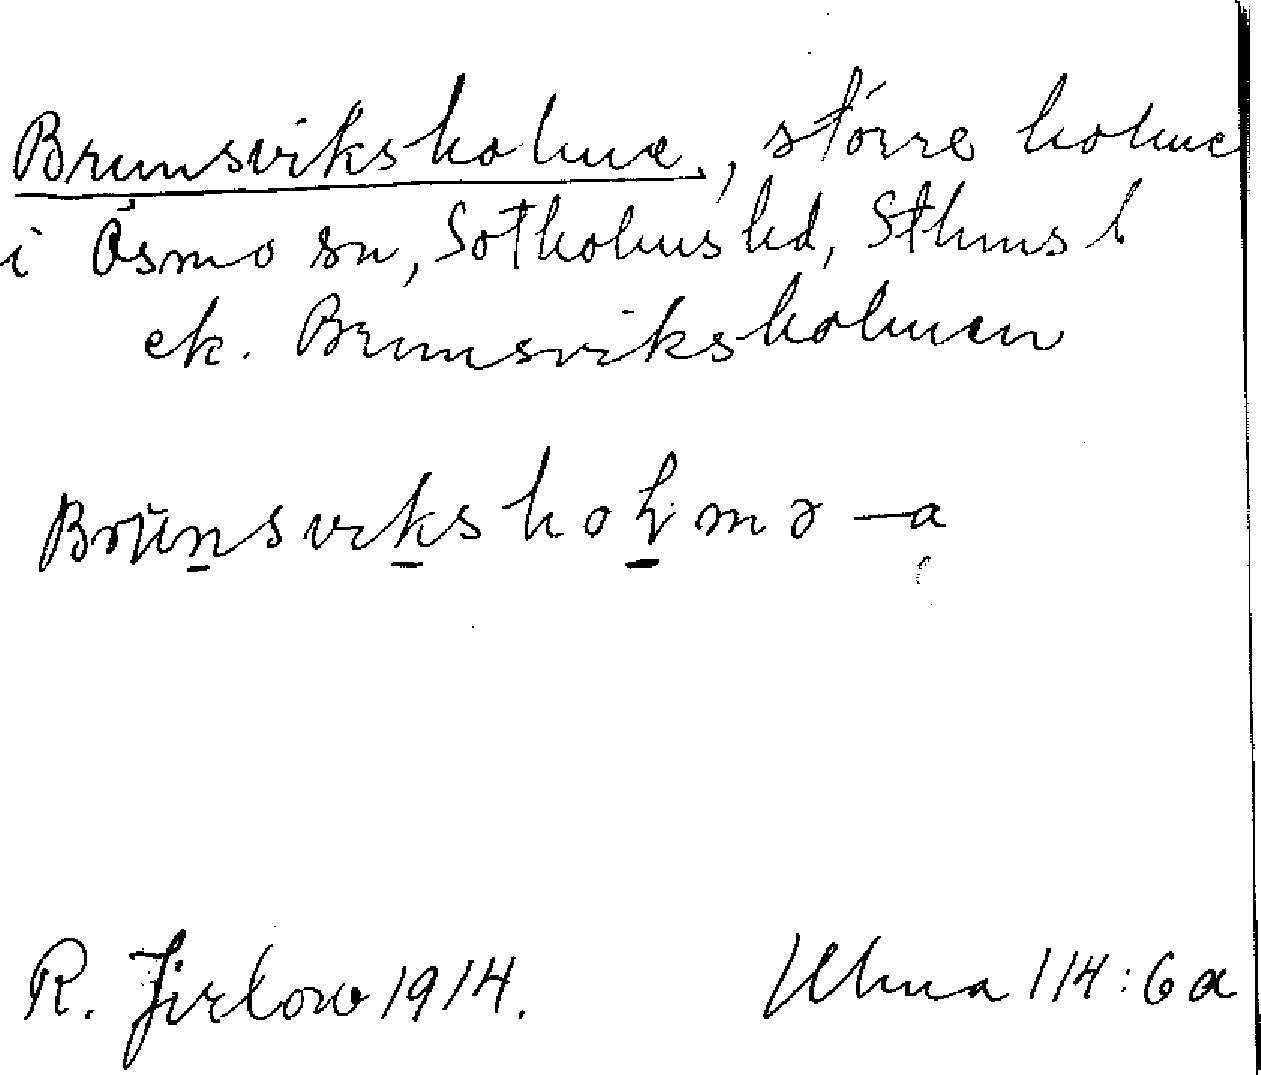 Brunsviksholme, större holme
i Ösmo sn, Sotholms hd, Sthms l
ek. Brunsviksholmen
R. Jirlow 1914. Ulma 114:6a